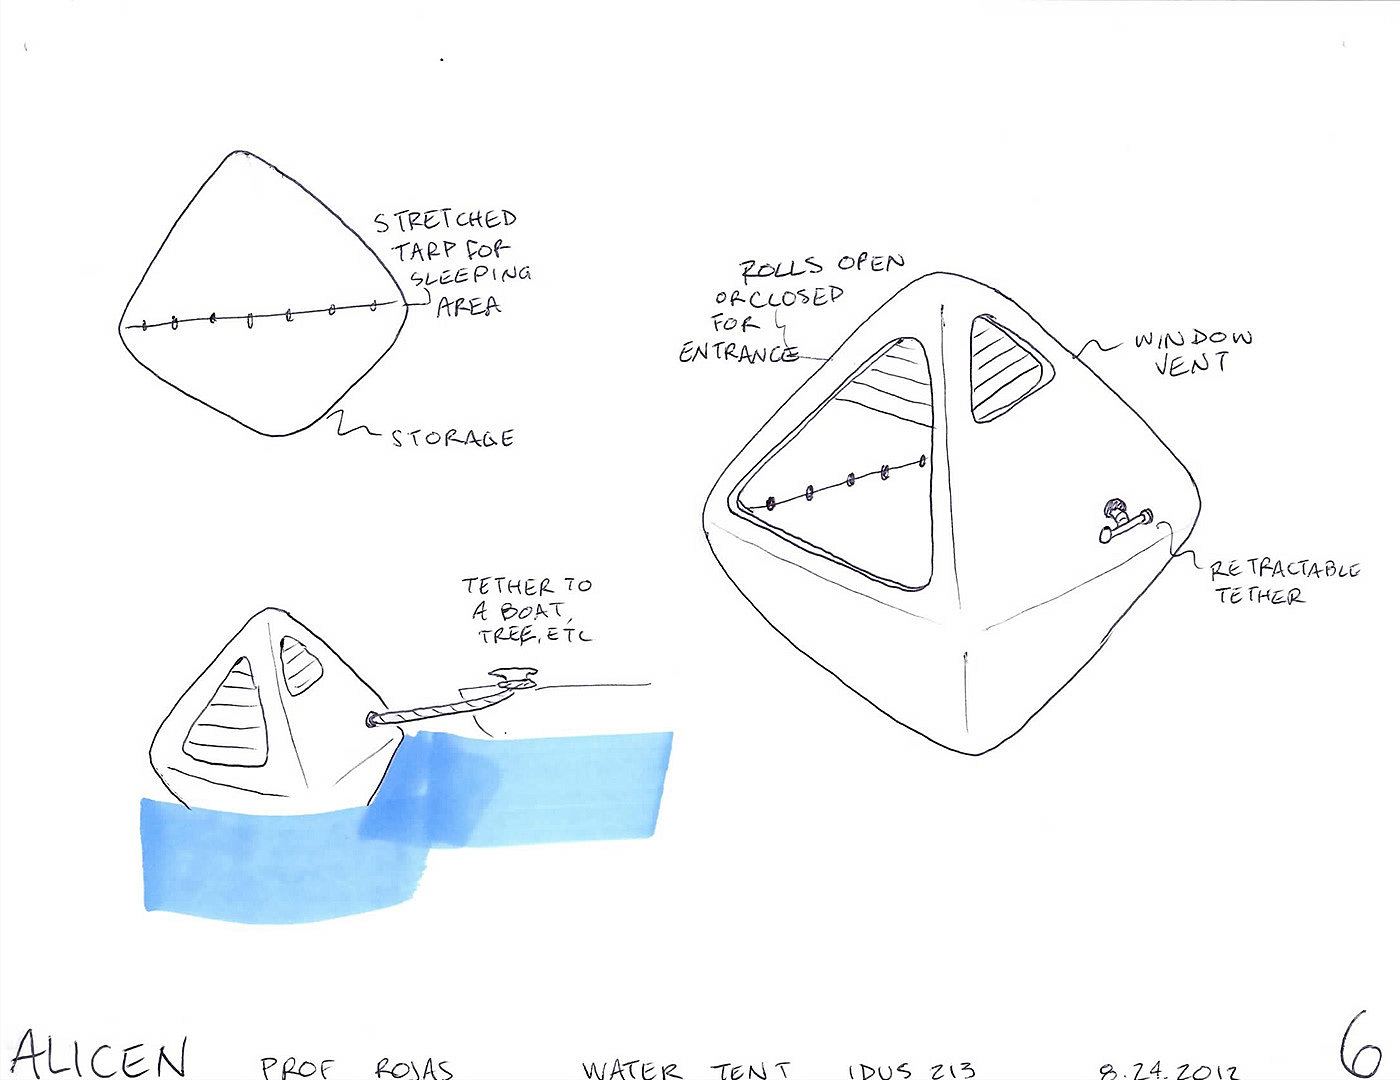 STRETCHED
TARP FOR
SLEEPING
AREA
STORAGE
ROLLS OPEN
OR CLOSED
FOR
ENTRANCE
WINDOW
VENT
RETRACTABLE
TETHER
TETHER TO
A BOAT,
TREE, ETC
ALICEN PROF ROJAS WATER TENT IDUS 213 8.24.2012 6